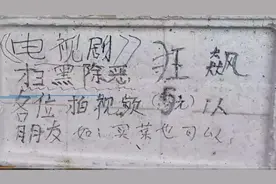 《电视剧》狂飙
扫黑除恶
各位拍视频(5元)1人
朋友们:买菜也可以